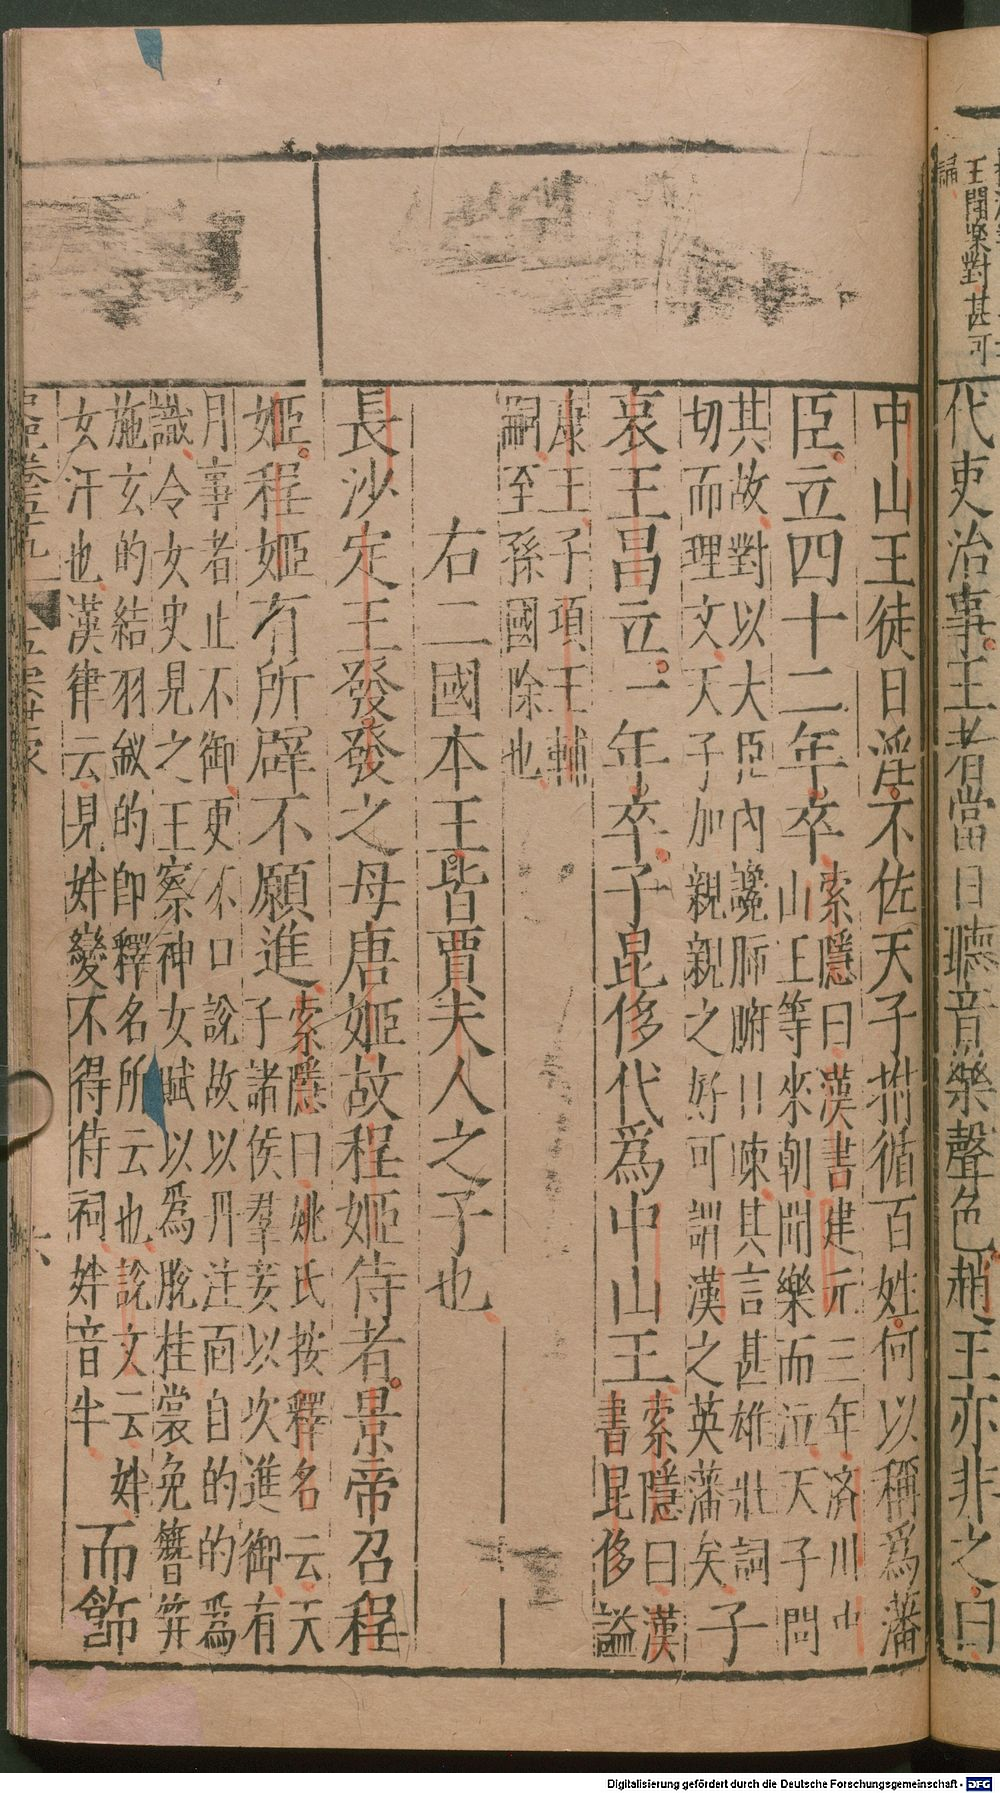 王聞樂對甚可
代吏治事王者當日聽音樂聲色趙王亦非之曰
中山王徒日淫不佐天子拊循百姓何以稱爲藩
臣立四十二年卒
索隱曰漢書建元三年済川中
山王等來朝聞樂而泣天子問
其故對以大臣內讒肺腑日疎其言甚雄壯詞
切而理文天子加親親之好可謂漢之英藩矣
子
哀王昌立一年卒子昆侈代爲中山王
索隱曰漢
書昆侈謚
康王子項王輔
嗣至孫國除也
右二國本王皆賈夫人之子也
長沙定王發發之母唐姬故程姬侍者景帝召程
姬程姬有所辟不願進
索隱曰姚氏按釋名云天
子諸侯羣妾以次進御有
月事者止不御更不口說故以丹注面自的的爲
識令女史見之王察神女賦以爲脫桂裳免簪笄
施玄的結羽釵的即釋名所云也說文云姅
女汙也漢律云見姅變不得侍祠姅音半
而飾
六
Digitalisierung gefördert durch die Deutsche Forschungsgemeinschaft - DFG